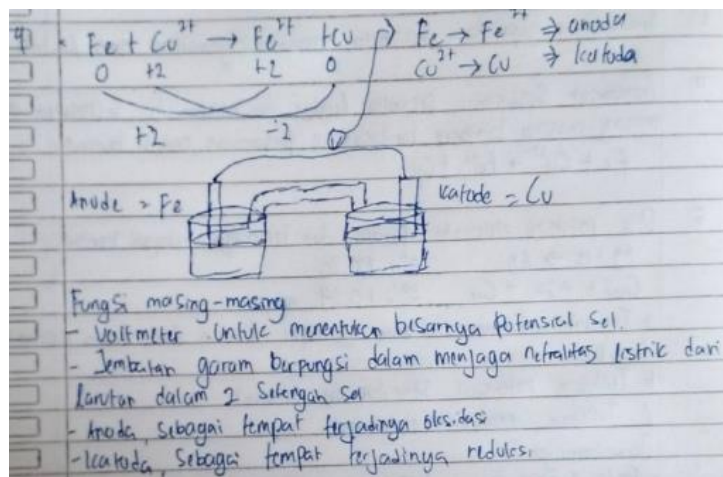 4) Fe + Cu²⁺ → Fe²⁺ + Cu } Fe → Fe²⁺ ⇒ anoda
0 +2 +2 0 Cu²⁺ → Cu ⇒ katoda
+2 -2
V
Anode = Fe Katode = Cu
Fungsi masing-masing
- Voltmeter untuk menentukan besarnya potensial sel.
- Jembatan garam berpungsi dalam menjaga netralitas listrik dari
larutan dalam 2 setengah sel
- Anoda, sebagai tempat terjadinya oksidasi
- katoda, sebagai tempat terjadinya reduksi